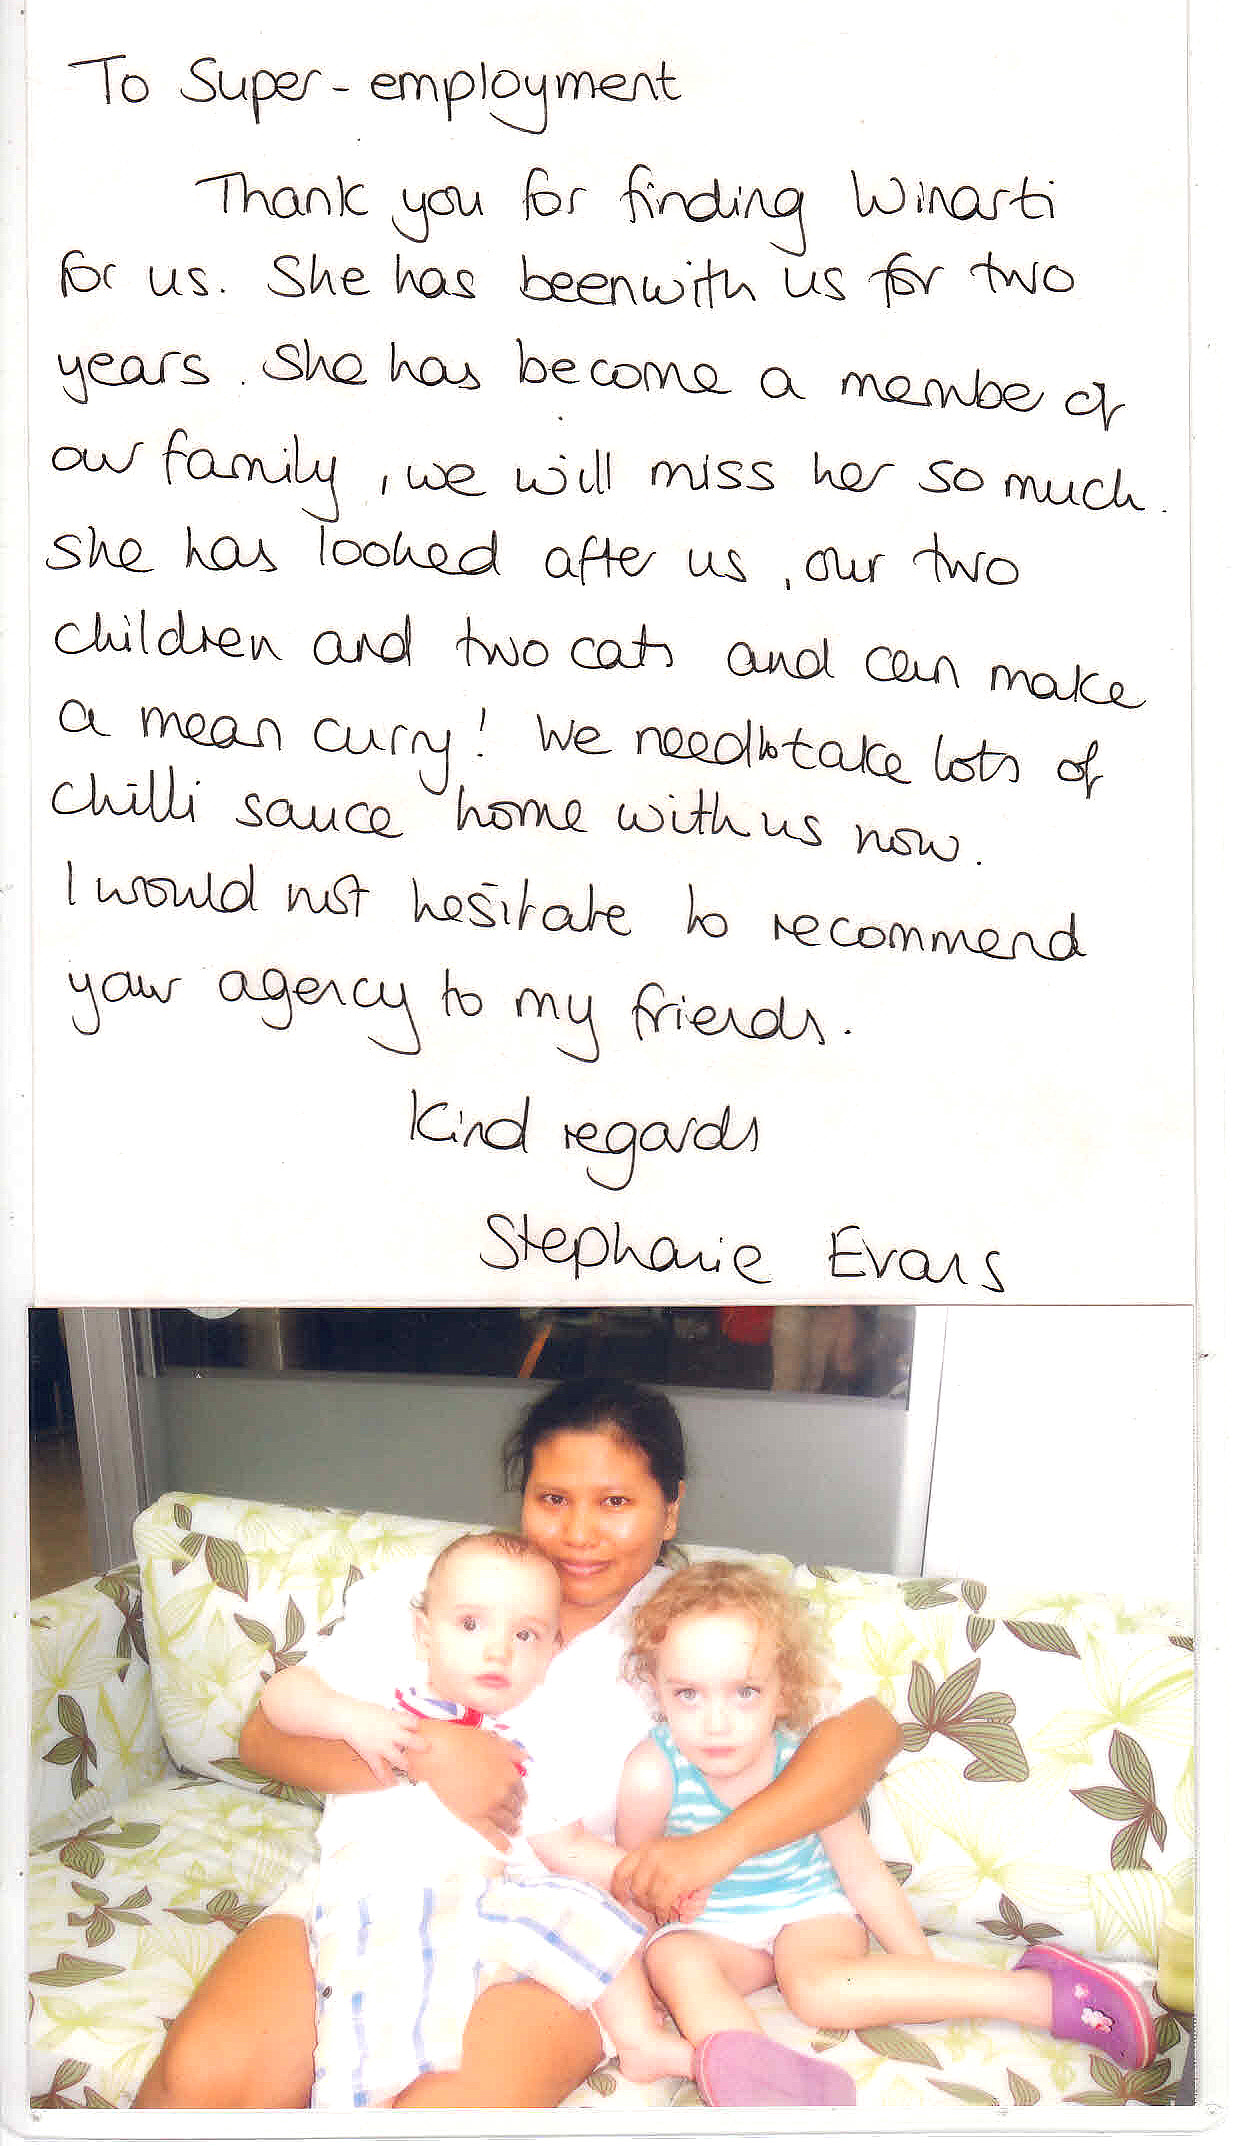 To Super-employment
Thank you for finding Winarti
for us. She has been with us for two
years. She has become a membe of
our family, we will miss her so much.
She has looked after us, our two
children and two cats and can make
a mean curry! We need to take lots of
chilli sauce home with us now.
I would not hesitate to recommend
your agency to my friends.
Kind regards
Stephanie Evans